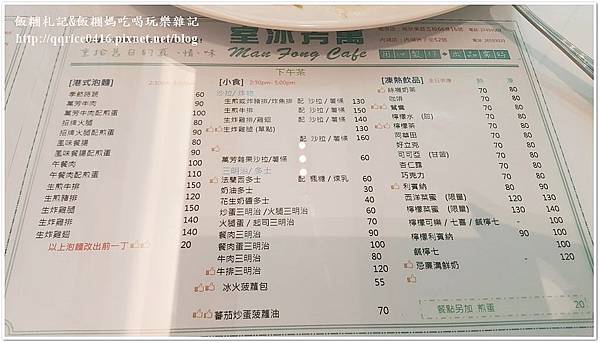 飯糰札記&飯糰媽吃喝玩樂雜記
http://qqrice0416.pixnet.net/blog
室冰芳萬
Man Fong Cafe
下午茶
[港式泡麵] 2:30pm- 5:00pm
季節時蔬 60
萬芳牛肉 90
萬芳牛肉配煎蛋 100
招牌火腿 80
招牌火腿配煎蛋 90
風味餐腸 80
風味餐腸配煎蛋 90
午餐肉 100
午餐肉配煎蛋 110
生煎牛排 150
生煎豬排 150
生炸雞腿 150
生炸雞翅 150
以上泡麵改出前一丁 20
[小食] 2:30pm- 5:00pm
沙拉/炸物
生煎或炸豬排/炸魚排 配 沙拉/薯條 130
生煎牛排 配 沙拉/薯條 160
生炸雞排/雞翅 配 沙拉/薯條 130
生炸雞腿(單點) 130
配 沙拉/薯條 160
萬芳雜果沙拉/薯條 60
三明治/多士
法蘭西多士 配 楓糖/煉乳 60
奶油多士 30
花生奶醬多士 40
炒蛋三明治/火腿三明治 60
火腿蛋/起司三明治 70
餐肉三明治 90
餐肉蛋三明治 100
牛肉三明治 80
牛排三明治 120
冰火菠蘿包 55
蕃茄炒蛋菠蘿油 70
[凍熱飲品] 全日供應 熱 凍
絲襪奶茶 70 80
咖啡 70 80
鴛鴦 70 80
檸檬水 (甜) 70 80
檸檬茶 70 80
阿華田 70 80
好立克 70 80
可可亞 (甘苦) 70 80
杏仁霜 70 80
巧克力 70 80
利賓納 80 90
西洋菜蜜 (限量) 120 130
檸檬菜蜜 (限量) 120 130
檸檬可樂/七喜/鹹檸七 100
檸檬利賓納 90 100
鹹檸七 100
忌廉溝鮮奶 120
餐點另加 煎蛋 20